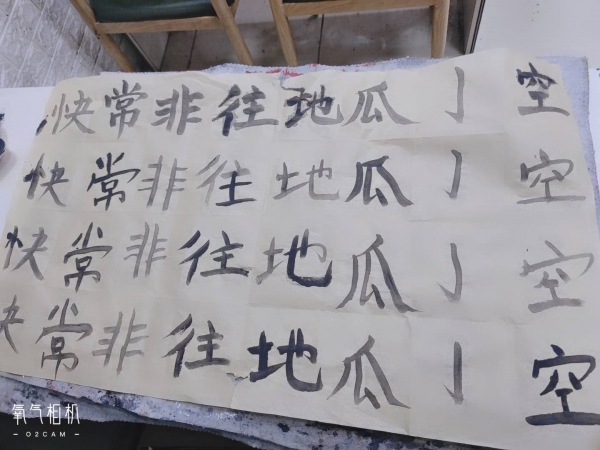 快常非往地瓜亅空
快常非往地瓜亅空
快常非往地瓜亅空
快常非往地瓜亅空
氧气相机
- O2CAM -